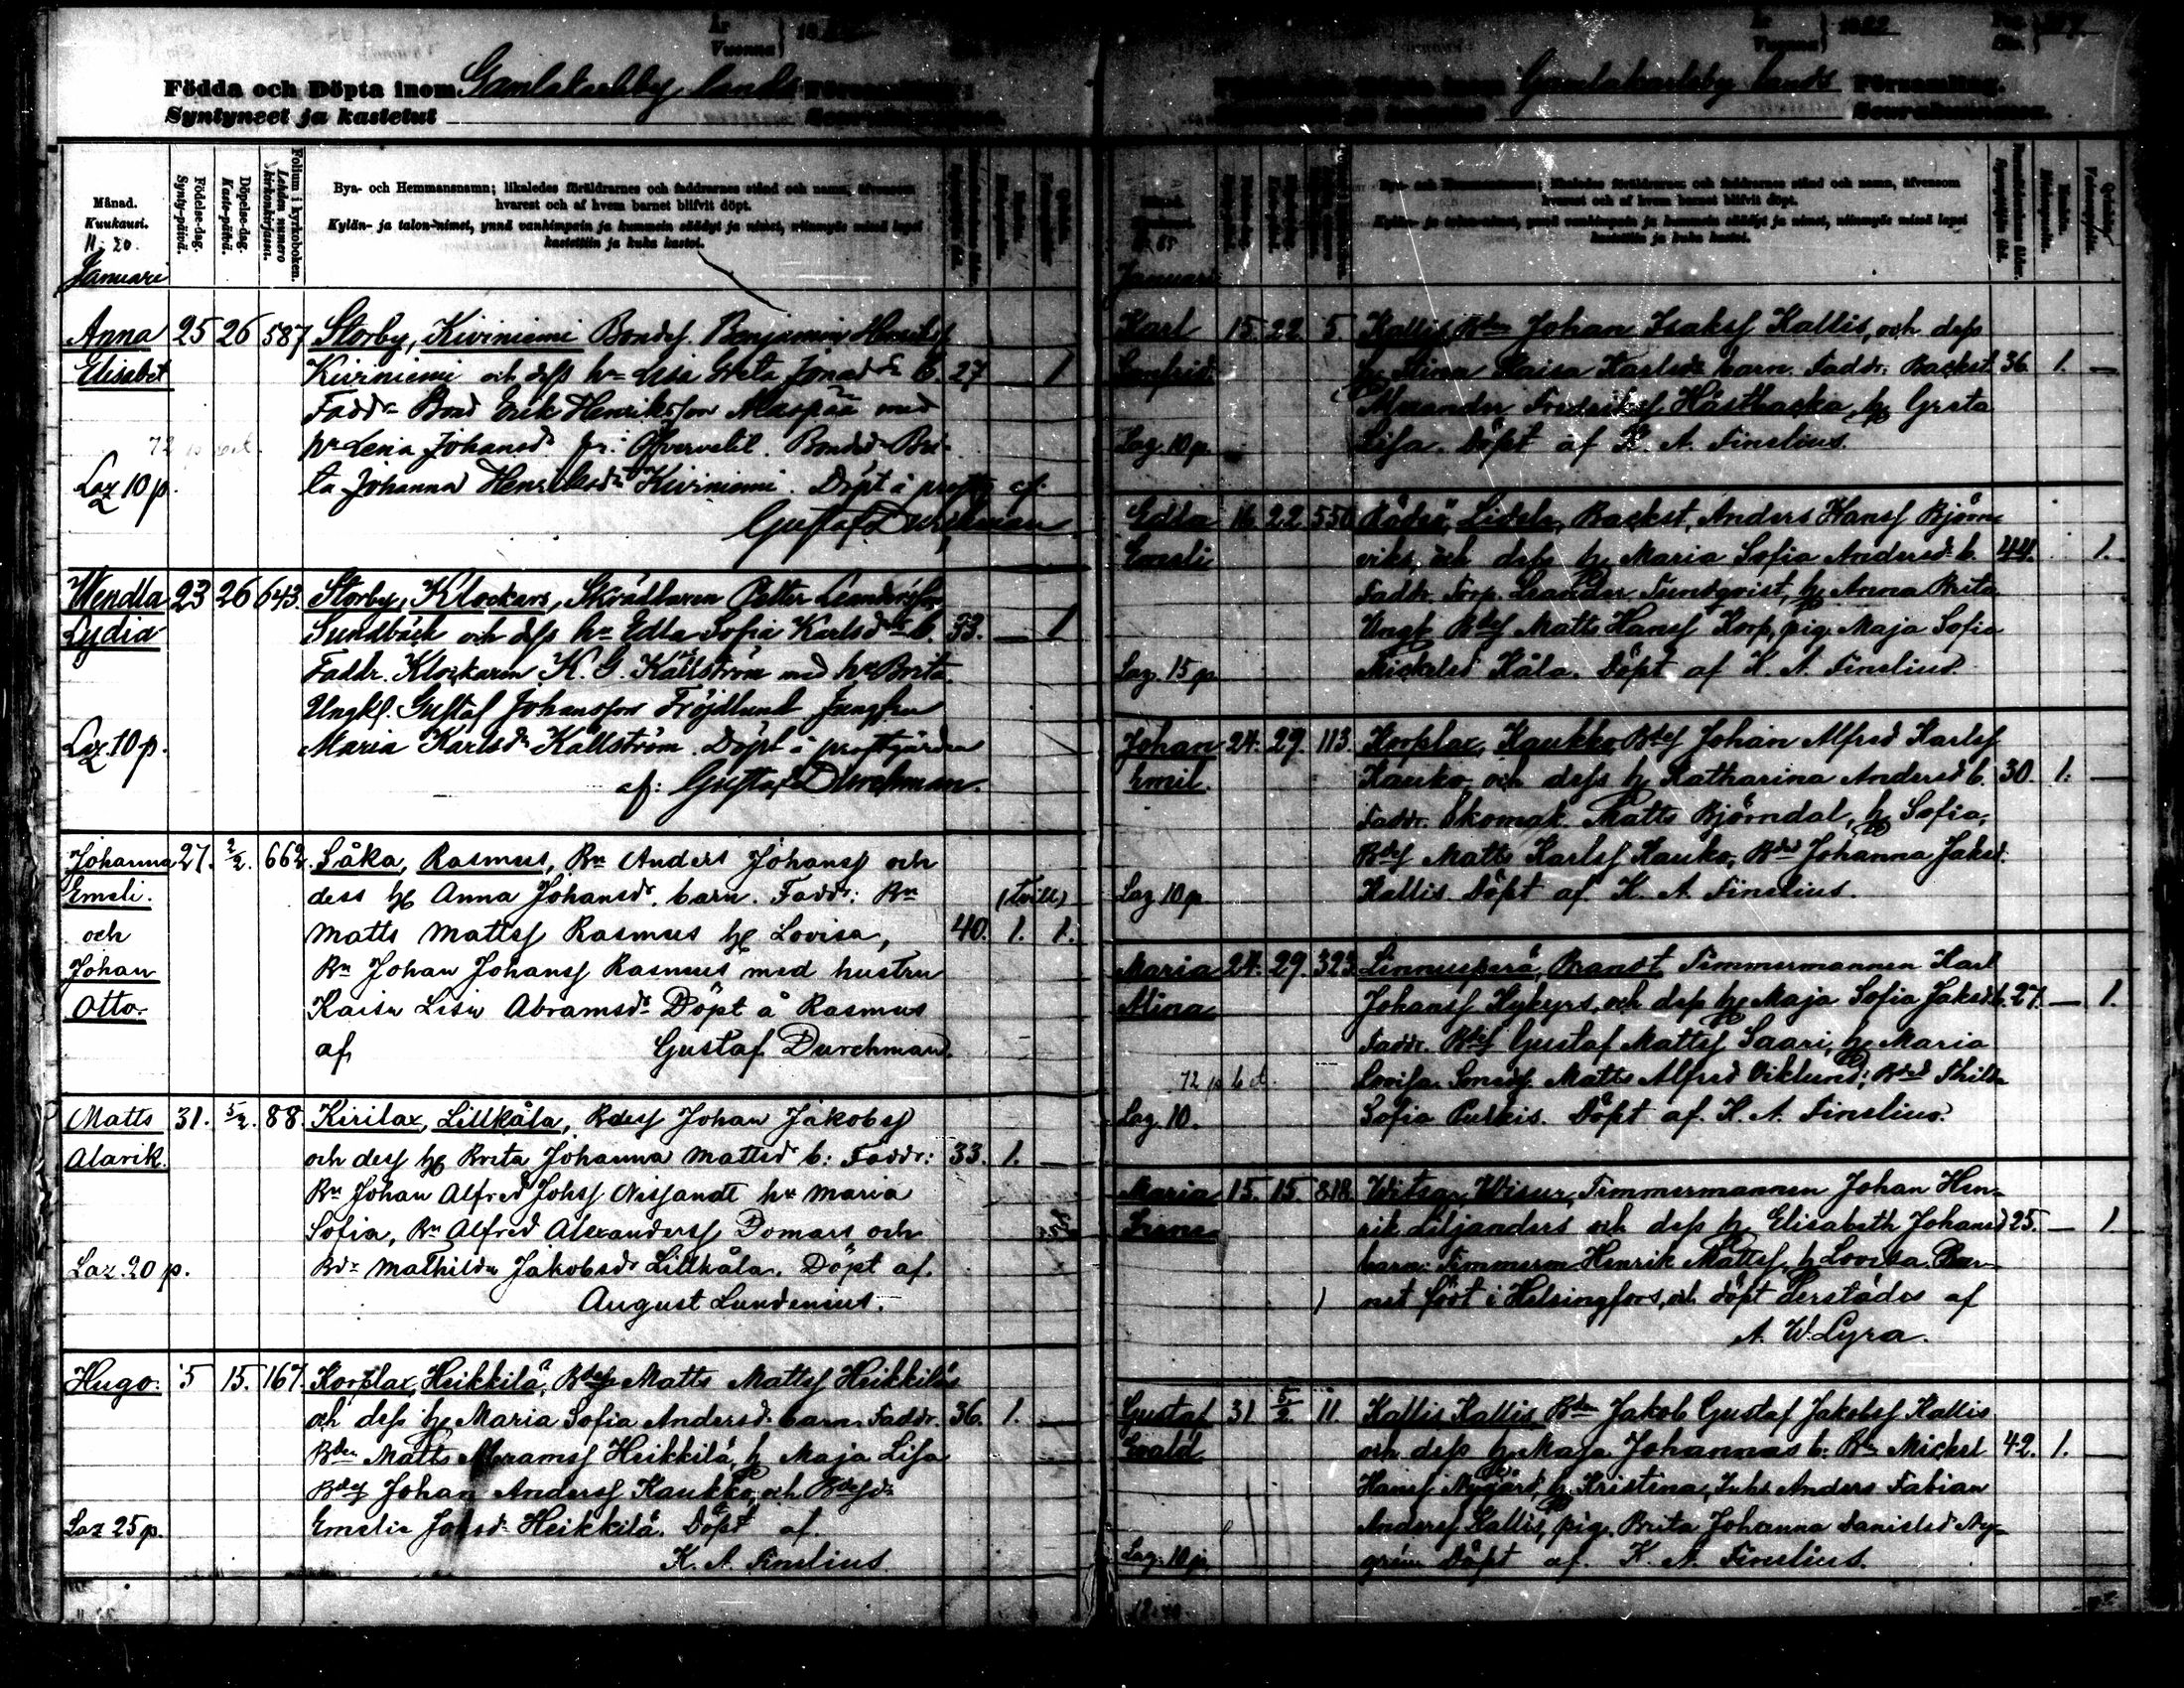 År
Vuonna } 18
Födda och Döpta inom Gamlakarleby lands Församling.
Syntyneet ja kastetut Seurakunnassa.
Månad.
Kuukausi.
Födelse-dag.
Synty-päivä.
Döpelse-dag.
Kaste-päivä.
Folium i kyrkoboken.
Lehden numero kirkonkirjassa.
Bya- och Hemmansnamn; likaledes föräldrarnes och faddrarnes stånd och namn, äfvensom
hvarest och af hvem barnet blifvit döpt.
Kylän- ja talon-nimet, ynnä vanhimpain ja kummein säädyt ja nimet, niinmyös missä lapsi
kastettiin ja kuka kastoi.
11-20.
Januari
Anna 25 26 587 Storby, Kiviniemi Bondes. Benjamin Henriks
Elisabet Kiviniemi och dess h. Lisa Greta Jonasd. b. 27 1
Fadd. Bond Erik Henriksson Maspää med
h. Lena Johansd. fr. Öfvervetil. Bonded. Bri-
Laz 10 p. ta Johanna Henriksd. Kiviniemi Döpt i prostg. af:
Gustaf Durchman
Wendla 23 26 643. Storby, Klockars, Skräddaren Petter Leandersson
Lydia Sundbäck och dess h. Edla Sofia Karlsd. b. 33. — 1
Faddr. Klockaren K. G. Källström med h. Brita.
Ungk. Gustaf Johansson Fröjdlund Jungfru
Laz 10 p. Maria Karlsd. Källström. Döpt i prostgården
af: Gustaf Durchman.
Johanna 27. 2/2. 662. Såka, Rasmus, Bn Anders Johanss och
Emeli. dess h Anna Johansd. barn. Fadd: Bn (Tvill)
och Matts Mattss Rasmus h Lovisa, 40. 1. 1.
Johan Bn Johan Johanss Rasmus med hustru
Otto. Kaisa Lisa Abramsd. Döpt å Rasmus
af Gustaf Durchman.
Matts 31. 5/2. 88. Kirilax, Lillkåla, Bdes Johan Jakobss
Alarik. och dess h Brita Johanna Mattsd b: Faddr: 33. 1. —
Bn Johan Alfred Johss Nissandt h. Maria
Sofia, Bn Alfred Alexanderss Domars och
Laz. 20 p. Bd. Mathilda Jakobsd. Lillkåla. Döpt af.
August Lundenius.
Hugo. 5 15. 167. Korplax, Heikkilä, Bdes Matts Mattss Heikkilä
och dess h Maria Sofia Andersd. barn. Faddr. 36. 1. —
Bdn Matts Abramss Heikkilä, h Maja Lisa
Bdes Johan Anderss Kaukko, och Bdesd.
Laz 25 p. Emelie Jakd. Heikkilä. Döpt af.
K. A. Finelius.
År
Vuonna } 1882
Gamlakarleby lands Församling.
Seurakunnassa.
Bya- och Hemmansnamn; likaledes föräldrarnes och faddrarnes stånd och namn, äfvensom
hvarest och af hvem barnet blifvit döpt.
Kylän- ja talon-nimet, ynnä vanhimpain ja kummein säädyt ja nimet, niinmyös missä lapsi
kastettiin ja kuka kastoi.
Januari
Karl 15. 22. 5. Kallis, Bdn Johan Isakss Kallis, och dess
h Stina Kaisa Karlsd. barn. Faddr. Backst. 36. 1. —
Alexander Hästbacka, h Greta
Laz. 10 p. Lisa. Döpt af K. A. Finelius.
Edla 16 22 550 Lidels, Backst. Anders Hanss Björn-
Emeli viks, och dess h Maria Sofia Andersd. b. 44. 1.
Faddr. Torp. Leander Sundqvist, h Anna Brita
Ungk. Bdes Matts Hanss Korp, pig. Maja Sofia
Laz. 15 p Mickelsd Kåla. Döpt af K. A. Finelius.
Johan 24. 29. 113. Korplax, Kaukko Bdes Johan Alfred Karlss
Emil. Kauko och dess h Katharina Andersd b. 30. 1. —
Faddr. Skomak. Matts Björndal, h Sofia,
Bdes Matts Karlss Kauko, Bdd Johanna Jaksd.
Laz 10 p. Kallis. Döpt af. K. A. Finelius.
Maria 24. 29. 323 Linnusperä, Brandt Timmermannen Karl
Alina Johanss Kykyrs, och dess h Maja Sofia Jaksd. b. 27. — 1.
Faddr. Bdes Gustaf Mattss Saari, h Maria
Lovisa. Matts Alfred Viklund; Bdd Thilda
Laz. 10. Sofia Purkis. Döpt af. K. A. Finelius.
Maria 15. 15 818 Witsar Wisur, Timmermannen Johan Hen-
Irene rik Liljanders och dess h Elisabeth Johansd 25. — 1
barn. Timmerm Henrik Mattss. h Lovisa. Bar-
net fört i Helsingfors, och döpt derstädes af
A. W. Lyra.
Gustaf 31 5/2. 11. Kallis Kallis Bdn Jakob Gustaf Jakobss Kallis
Evald och dess h Maja Johannas b. Bn Mickel 42. 1.
Hanss Nygård, h Kristina, Inhs Anders Fabian
Anderss Kallis, pig. Brita Johanna Danielsd Ny-
Laz. 10 p. gren Döpt af. K. A. Finelius.